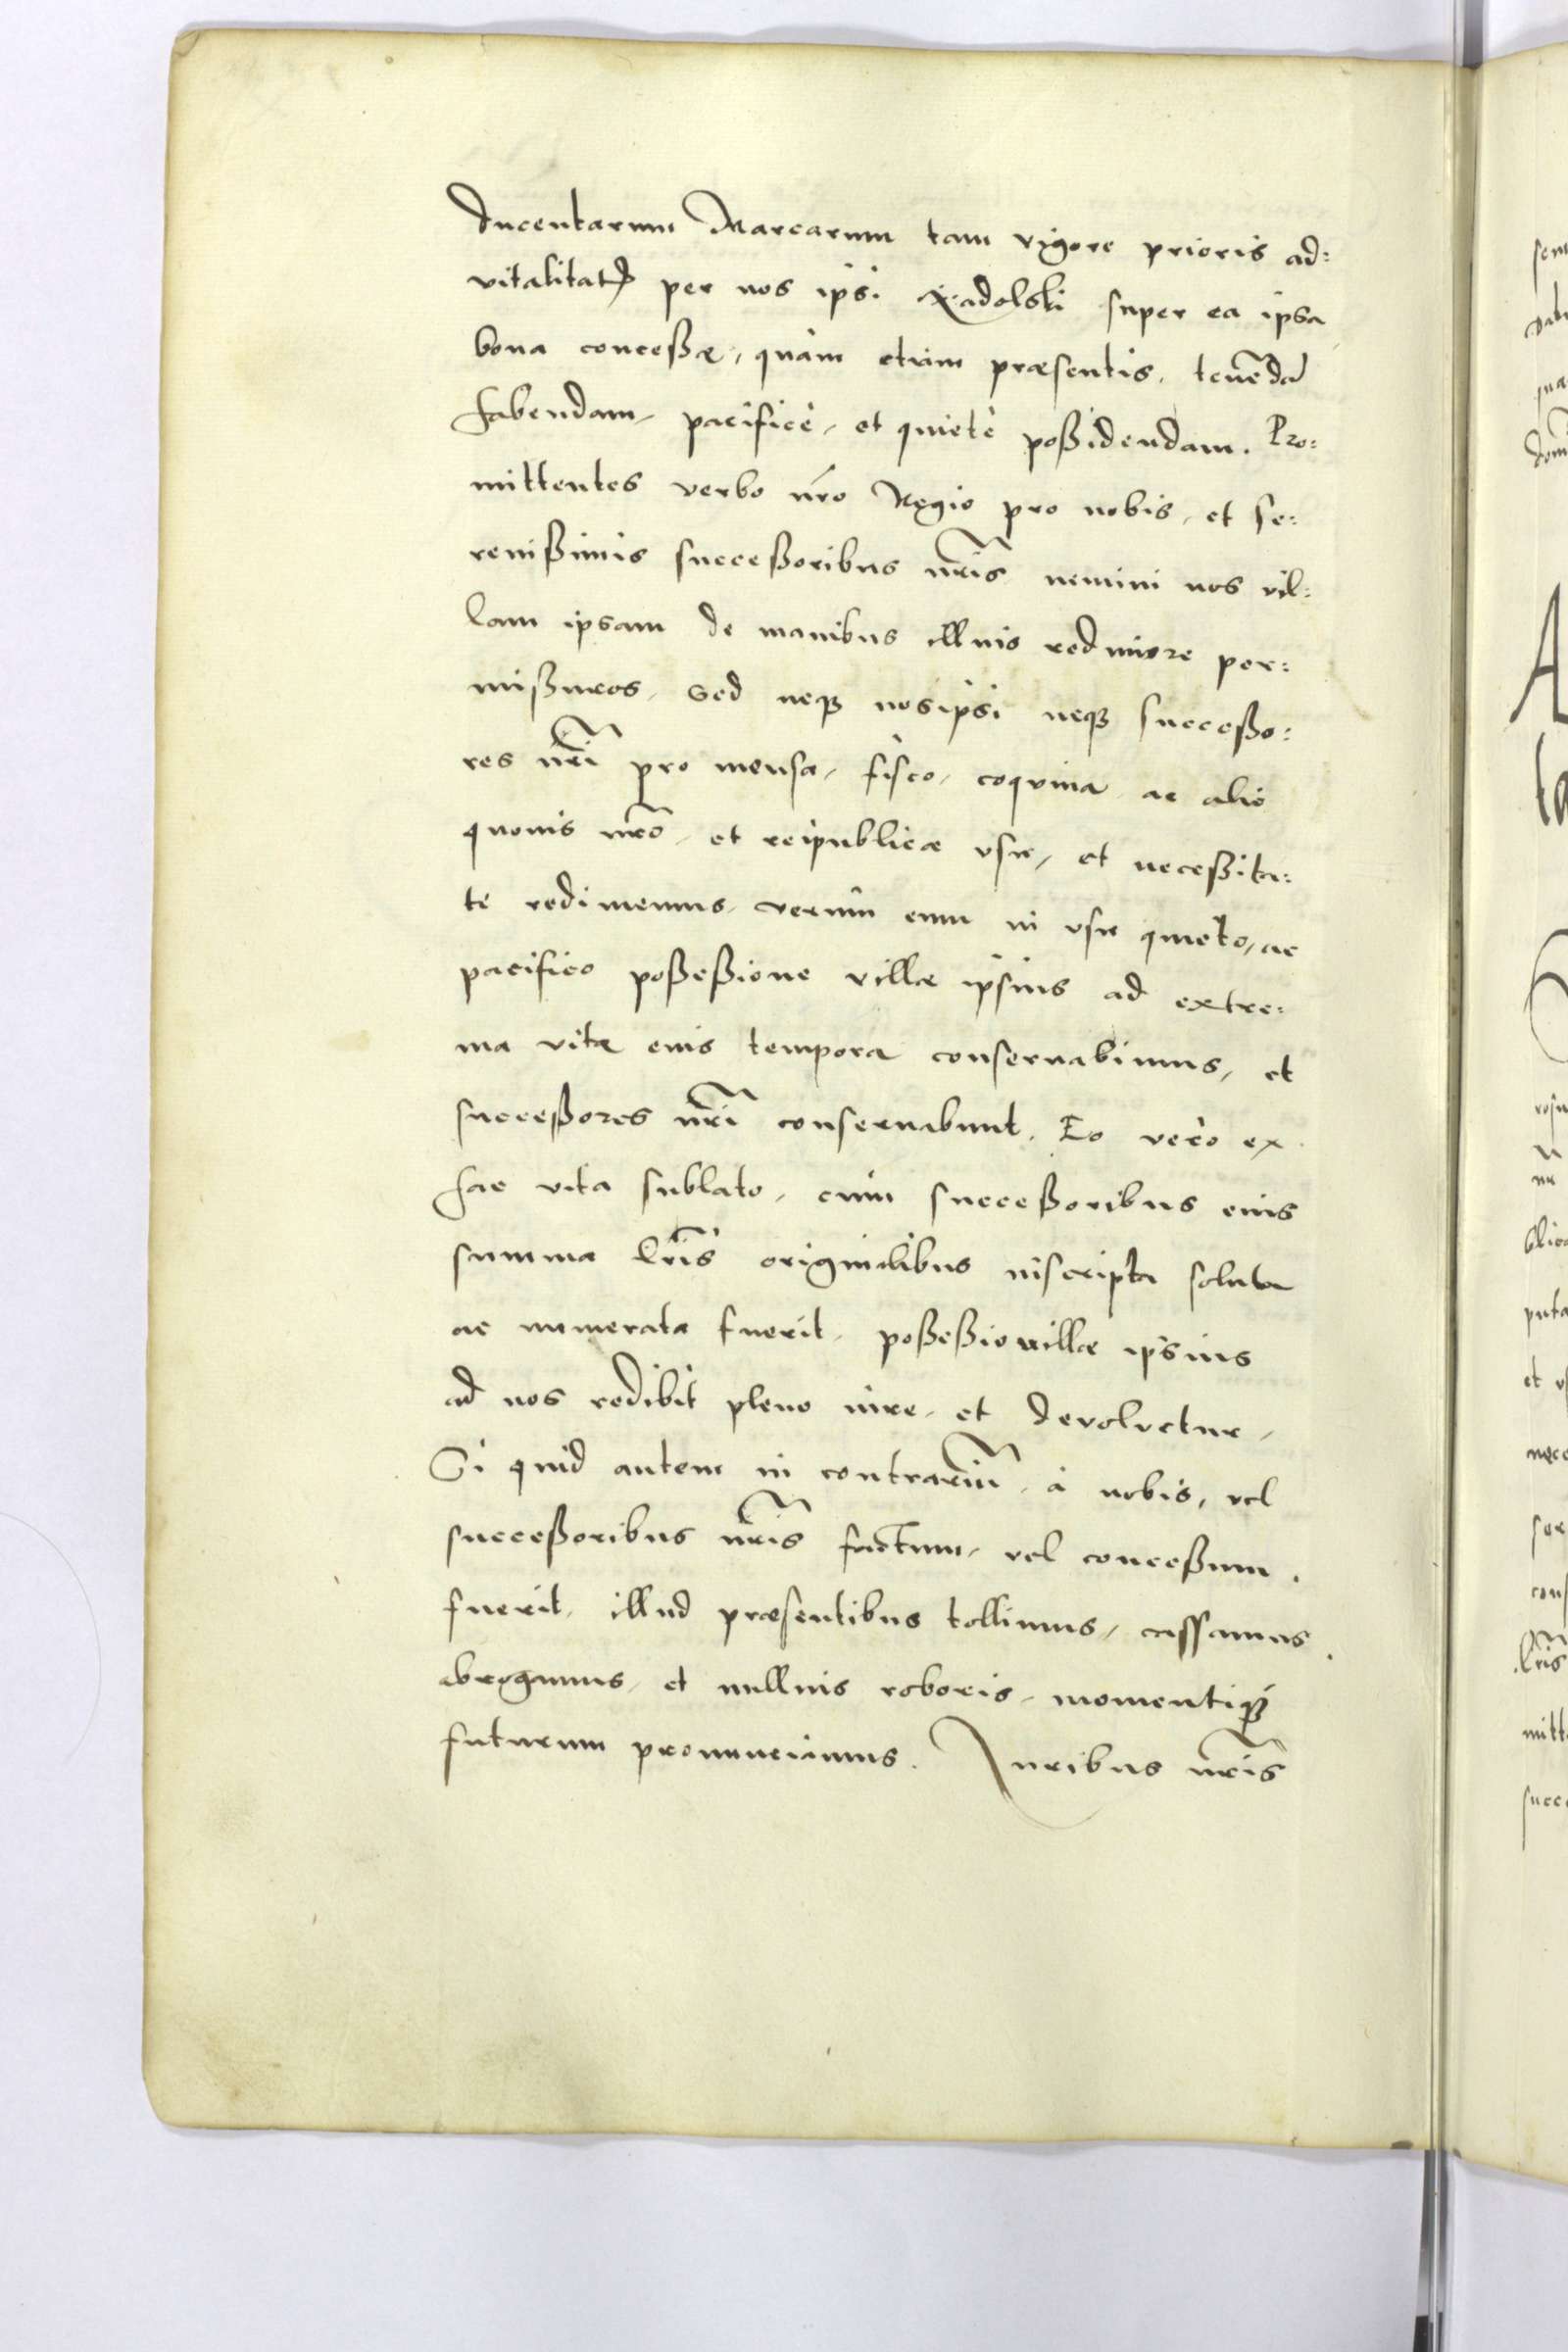 ducentarum Marcarum tam vigore prioris ad:
vitalitatꝭ per nos ipsi Xadolski super ea ipsa
bona concessæ, quàm etiam præsentis, tenēdā
habendam, pacificè, et quietè possidendam. Pro:
mittentes verbo nr̄o Regio pro nobis, et se:
renissimis successoribus nr̄is nemini nos vil:
lam ipsam de manibus illius redimere per:
missuros, sed neqꝫ nosipsi neqꝫ successo:
res nr̄i pro mensa, fisco, coquina ac alio
quouis nr̄o, et reipublicæ vsu, et necessita:
te redimemus, verùm eum in vsu quieto, ac
pacifico possessione villæ ipsius ad extre:
ma vitæ eius tempora conseruabimus, et
successores nr̄i conseruabunt. Eo verò ex
hac vita sublato, cum successoribus eius
summa lr̄is originalibus inscripta soluta
ac numerata fuerit, possessio villæ ipsius
ad nos redibit pleno iure, et devoluetur,
Si quid autem in contrariū, à nobis, vel
successoribus nr̄is factum, vel concessum
fuerit, illud præsentibus tollimus, cassamus
abrogamus, et nullius roboris, momentiqꝫ
futurum pronunciamus. Iuribus nr̄is